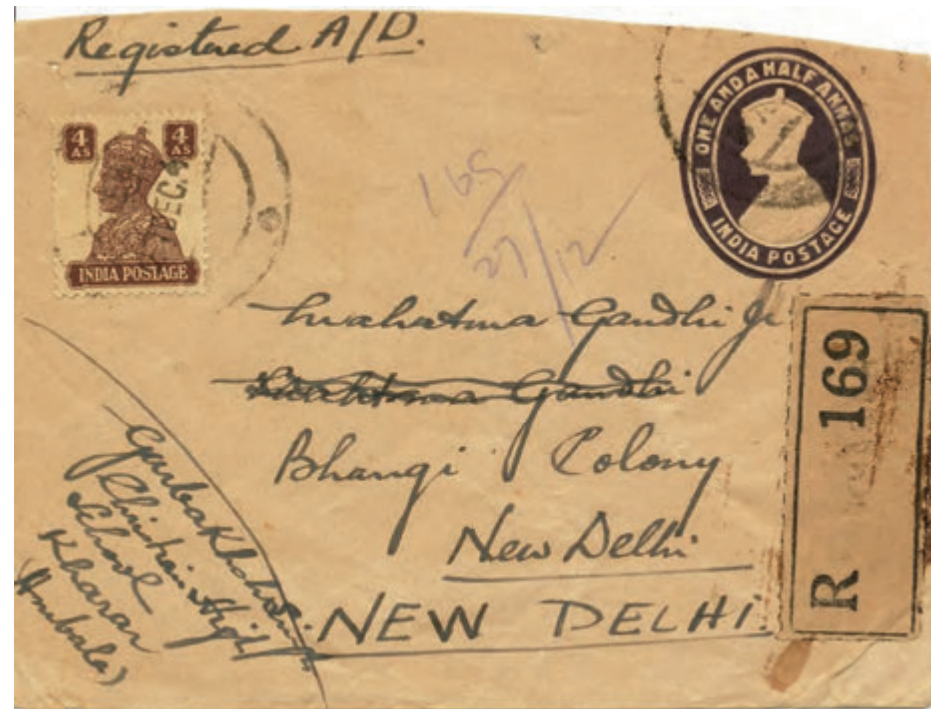 Registered A/D.
4 AS 4 AS
DEC.
INDIA POSTAGE
ONE AND A HALF ANNAS
INDIA POSTAGE
27/12
Mahatma Gandhi Ji
Mahatma Gandhi
Bhangi Colony
New Delhi
NEW DELHI.
R 169
Christian High
School
Kharar
(Ambala)